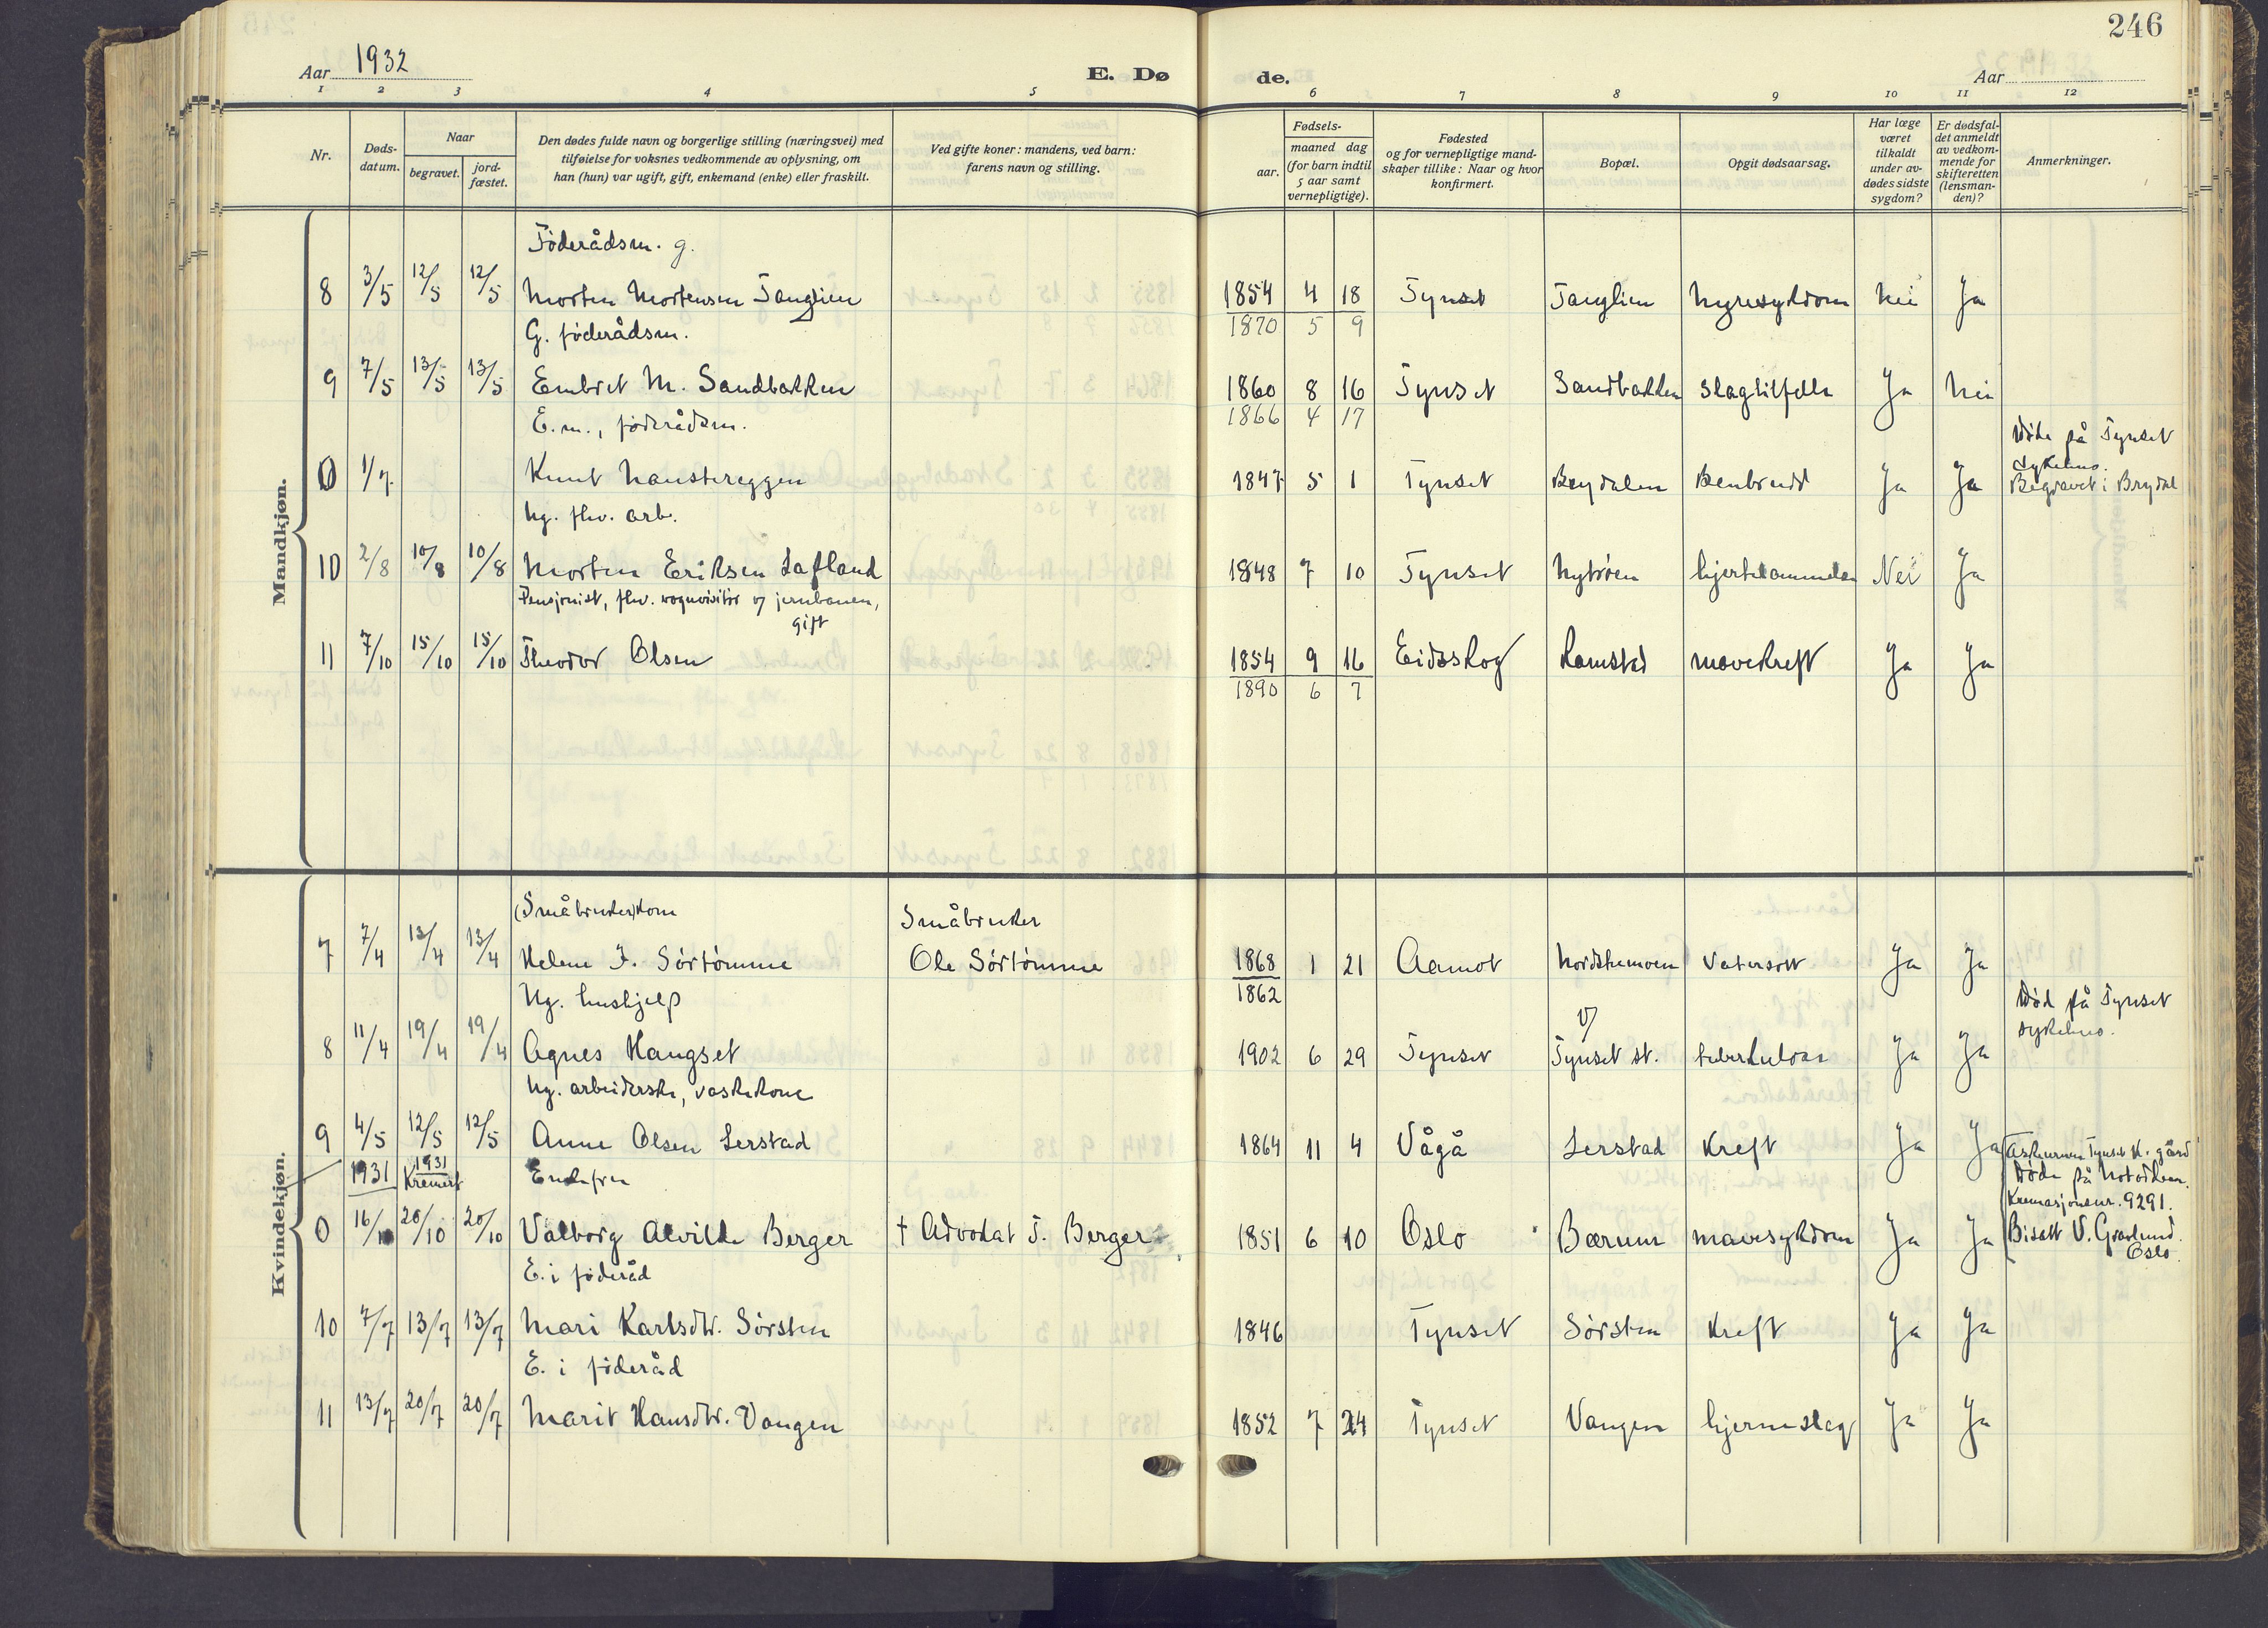 246
Aar 1932
E. Dø de.
Aar
1 2 3 4 5 6 7 8 9 10 11 12
Nr.
Døds-
datum.
Naar
begravet.
jord-
fæstet.
Den dødes fulde navn og borgerlige stilling (næringsvei) med
tilføielse for voksnes vedkommende av oplysning, om
han (hun) var ugift, gift, enkemand (enke) eller fraskilt.
Ved gifte koner: mandens, ved barn:
farens navn og stilling.
Fødsels-
aar. maaned dag
(for barn indtil
5 aar samt
vernepligtige).
Fødested
og for vernepligtige mand-
skaper tillike: Naar og hvor
konfirmert.
Bopæl.
Opgit dødsaarsag.
Har læge
været
tilkaldt
under av-
dødes sidste
sygdom?
Er dødsfal-
det anmeldt
av vedkom-
mende for
skifteretten
(lensman-
den)?
Anmerkninger.
Mandkjøn.
Føderådsm. g.
8 3/5 12/5 12/5 Morten Mortensen Tanglien 1854 4 18 Tynset Tanglien Nyresykdom Nei Ja
1870 5 9
G. føderådsm.
9 7/5 13/5 13/5 Embret M. Sandbakken 1860 8 16 Tynset Sandbakken Slagtilfelle Ja Nei
1866 4 17
E.m., føderådsm.
Døde på Tynset
sykehus.
0 1/7 Knut Haustereggen 1847 5 1 Tynset Brydalen Benbrudd Ja Ja Begravet i Brydal
Ug. fhv. arb.
10 2/8 10/8 10/8 Morten Eriksen Lafland 1848 7 10 Tynset Nytrøen hjertelammelse Nei Ja
Pensjonist, fhv. vognvisitør v/ jernbanen,
gift
11 7/10 15/10 15/10 Theodor Olsen 1854 9 16 Eidsskog Ramstad mavekreft Ja Ja
1890 6 7
Kvindekjøn.
(Småbruker)kone Småbruker
7 7/4 13/4 13/4 Helene J. Sørtømme Ole Sørtømme 1868 1 21 Aamot Nordstumoen Vatersott Ja Ja
1862
Ug. hushjelp
Død på Tynset
sykehus.
8 11/4 19/4 19/4 Agnes Haugset 1902 6 29 Tynset v/ Tynset st. tuberkulose Ja Ja
Ug. arbeiderske, vaskekone
9 4/5 12/5 12/5 Anne Olsen Lerstad 1864 11 4 Vågå Lerstad Kreft Ja Ja
1931 1931 Kremert Enkefru
Askeurnen Tynset k. gård
Døde på Notodden.
Kremasjonsnr. 9291.
0 16/10 20/10 20/10 Valborg Alvilde Berger † Advokat T. Berger 1851 6 10 Oslo Bærum mavesykdom Ja Ja Bisatt V. Gravlund.
Oslo.
E. i føderåd
10 7/7 13/7 13/7 Mari Karlsdtr. Sørsten 1846 Tynset Sørsten Kreft Ja Ja
E. i føderåd
11 13/7 20/7 20/7 Marit Hansdtr. Vangen 1852 7 24 Tynset Vangen hjerneslag Ja Ja